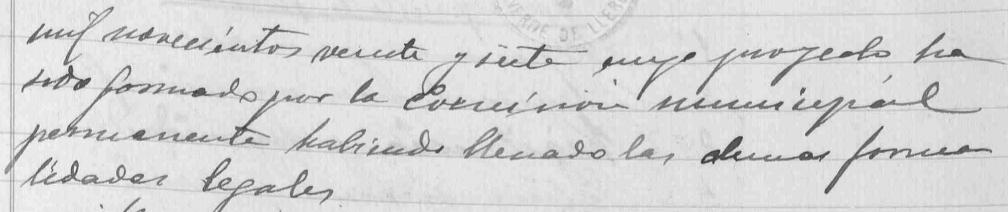 VERDE DE LLER
mil novecientos veinte y siete cuyo proyecto ha
sido formado por la Comisión municipal
permanente habiendo llenado las demas forma
lidades legales